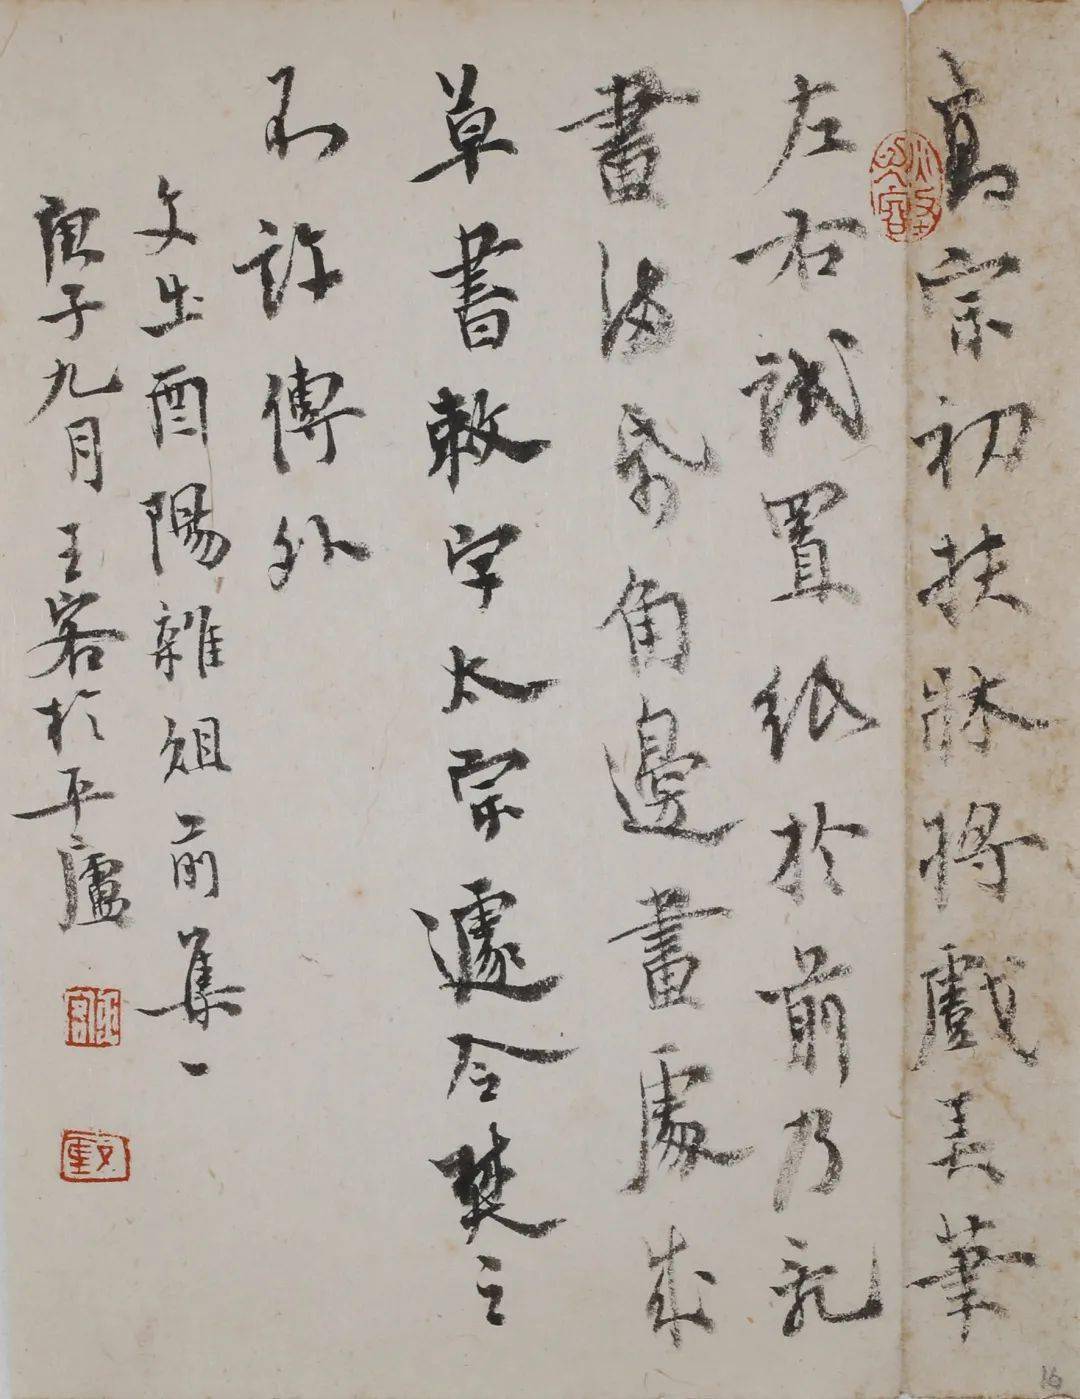 高宗初扶牀將戲弄筆
左右試置紙於前乃乱
書滿帋角邊畫處成
草書敕字太宗遽令焚之
不許傳外
文出酉陽雜俎前集一
庚子九月王客於平廬
16